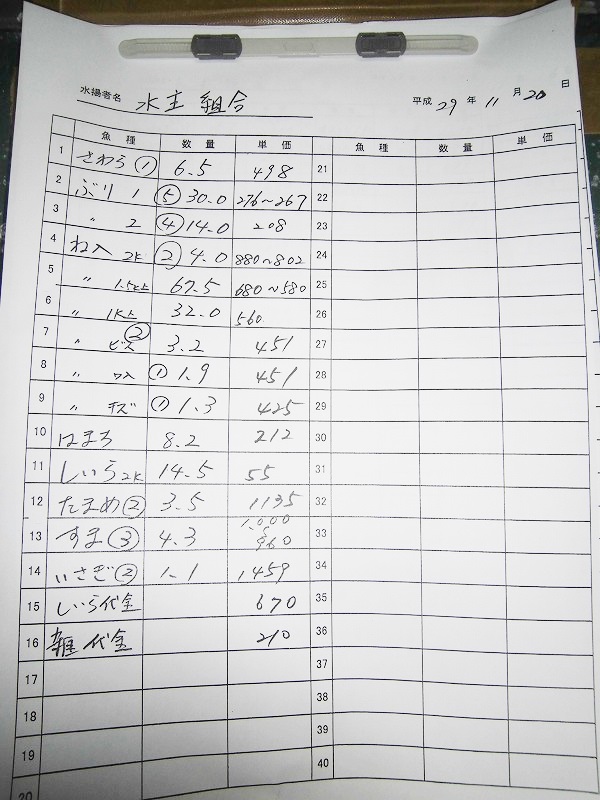 水揚者名 水主組合 平成 29 年 11 月 20 日
魚種 数量 単価 魚種 数量 単価
1 さわら ① 6.5 498 21
2 ぶり 1 ⑤ 30.0 276~267 22
3 〃 2 ④ 14.0 208 23
4 ね入 2K ② 4.0 880~802 24
5 〃 1.5K上 67.5 680~580 25
6 〃 1K上 32.0 560 26
7 〃 ビズ ② 3.2 451 27
8 〃 ワ入 ① 1.9 451 28
9 〃 キズ ① 1.3 425 29
10 はまち 8.2 212 30
11 しいら 2K 14.5 55 31
12 たまめ ② 3.5 1135 32
13 すま ③ 4.3 1,000 960 33
14 いさぎ ② 1.1 1459 34
15 しいら代金 670 35
16 雑代金 210 36
17 37
18 38
19 39
20 40